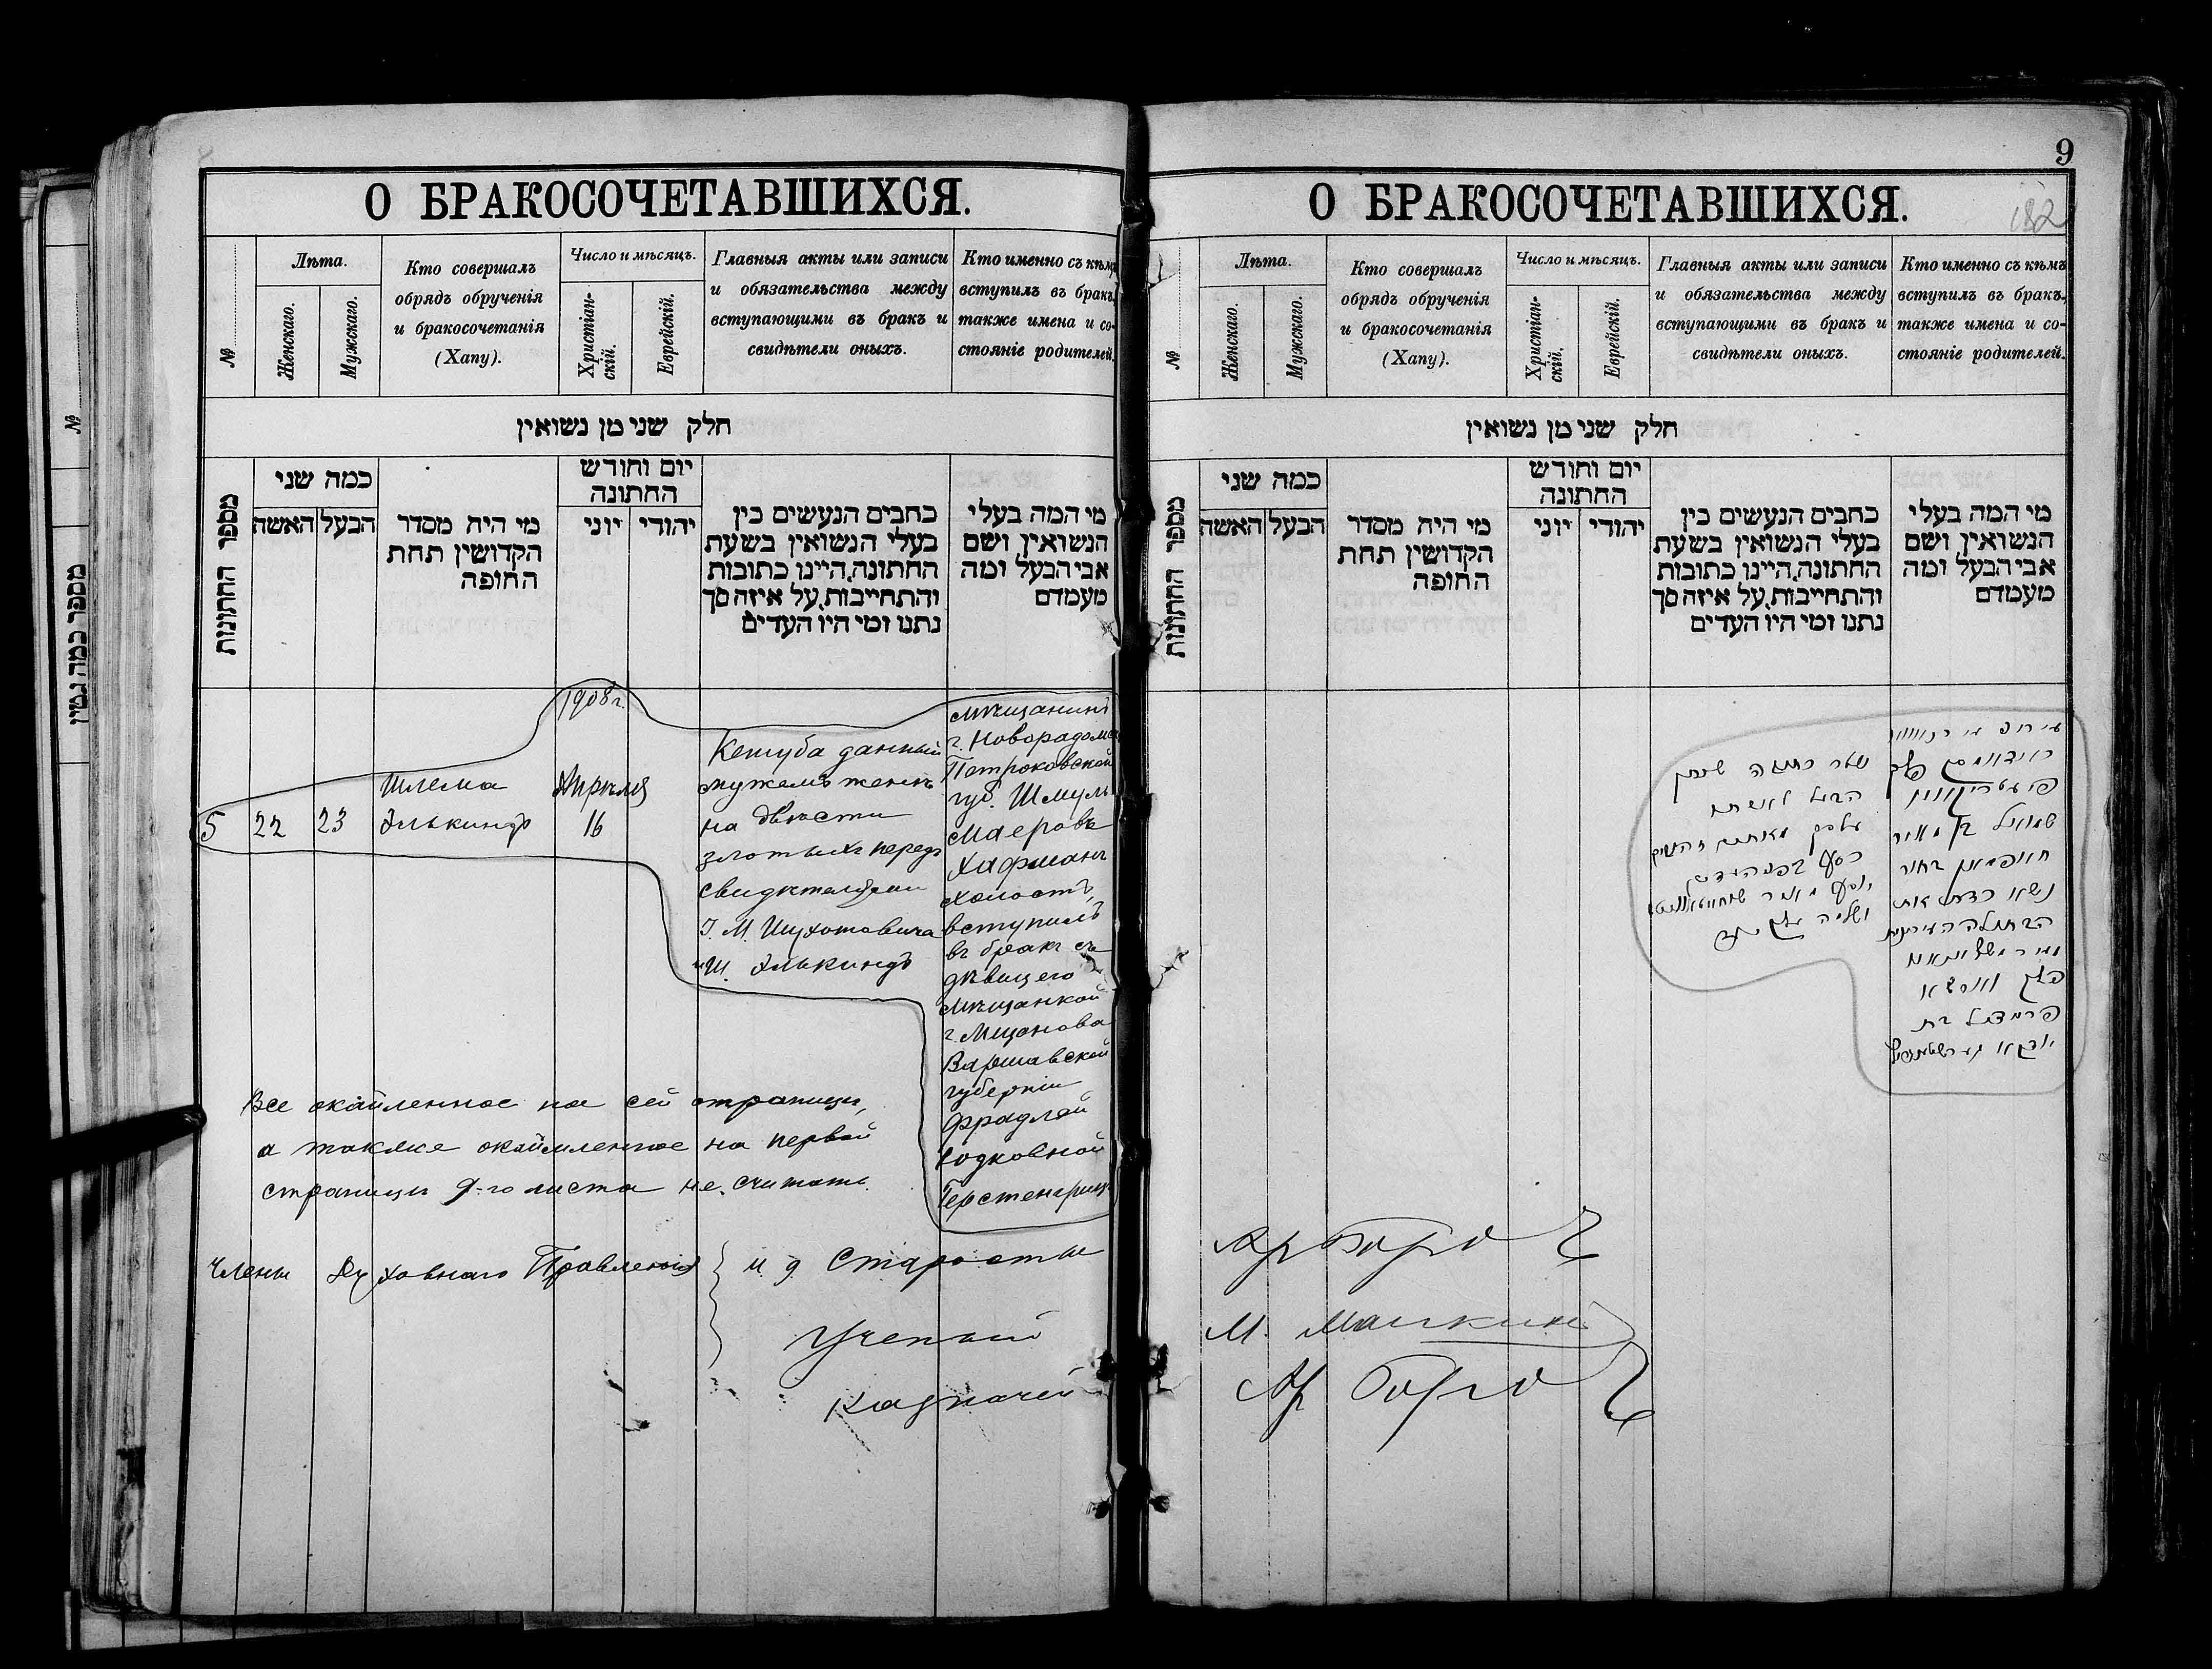 О БРАКОСОЧЕТАВШИХСЯ.
№
Лѣта.
Женскаго.
Мужскаго.
Кто совершалъ
обрядъ обрученія
и бракосочетанія
(Хапу).
Число и мѣсяцъ.
Христіан-
скій.
Еврейскій.
Главныя акты или записи
и обязательства между
вступающими въ бракъ и
свидѣтели оныхъ.
Кто именно съ кѣмъ
вступилъ въ бракъ,
также имена и со-
стояніе родителей.
חלק שני מן נשואין
מספר החתונות
כמה שני
הבעל
האשה
מי היה מסדר
הקדושין תחת
החופה
יום וחודש
החתונה
יהודי
יוני
כתבים הנעשים בין
בעלי הנשואין בשעת
החתונה,היינו כתובות
והתחייבות,על איזה סך
נתנו ומי היו העדים
מי המה בעלי
הנשואין ושם
אבי הבעל ומה
מעמדם
5
22
23
Шлема
Элькиндъ
1908 г.
Апрѣля
16
Кетуба данный
мужемъ женѣ
на двѣсти
злотыхъ передъ
свидѣтелями
І. М. Шухотовича
и Ш. Элькиндъ
мѣщанинъ
г. Новорадомск
Петроковской
губ. Шмуль
Маеровъ
Хафманъ
холостъ,
вступилъ
въ бракъ съ
дѣвицею
мѣщанкой
г. Мщанова
Варшавской
губерніи
Фрадлей
Юдковной
Герстенкрицъ
Все окаймленное на сей страницы,
а также окаймленное на первой
страницы 9-го листа не считать.
Члены Духовнаго Правленія
и д Старосты
Ученый
Казначей
9
182
О БРАКОСОЧЕТАВШИХСЯ.
№
Лѣта.
Женскаго.
Мужскаго.
Кто совершалъ
обрядъ обрученія
и бракосочетанія
(Хапу).
Число и мѣсяцъ.
Христіан-
скій.
Еврейскій.
Главныя акты или записи
и обязательства между
вступающими въ бракъ и
свидѣтели оныхъ.
Кто именно съ кѣмъ
вступилъ въ бракъ,
также имена и со-
стояніе родителей.
חלק שני מן נשואין
מספר החתונות
כמה שני
הבעל
האשה
מי היה מסדר
הקדושין תחת
החופה
יום וחודש
החתונה
יהודי
יוני
כתבים הנעשים בין
בעלי הנשואין בשעת
החתונה,היינו כתובות
והתחייבות,על איזה סך
נתנו ומי היו העדים
מי המה בעלי
הנשואין ושם
אבי הבעל ומה
מעמדם
שטר כתובה שנתן
הבעל לאשתו
שמואל בן מאיר
האפמאן בחור
פלך ווארשא
פריידל בת
М. Машкинъ